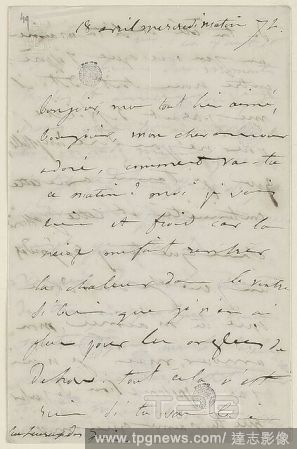 49
18 avril mercredi matin 7 h.
Bonjour, mon tout bien aimé,
bonjour, mon cher amour
adoré, comment vas-tu
ce matin ? moi, je suis
et froid car la
neige me fait rentrer
la chaleur dans le ventre
si bien que je n'en ai
plus pour les
dehors. tout cela n'est
rien si tu
www.tpgnews.com/達志影像